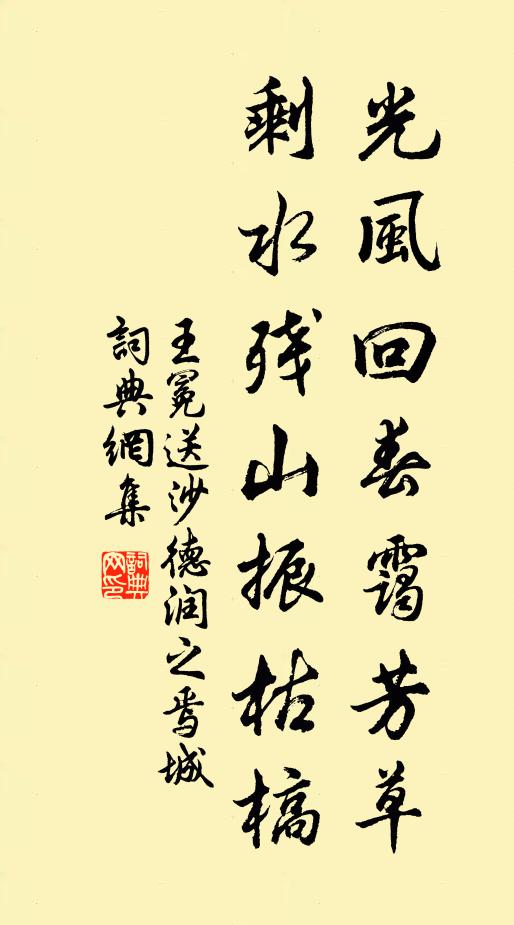 光風回春靄芳草
剩水殘山振枯槁
王冕送沙德润之焉城
詞典網集
詞典网印